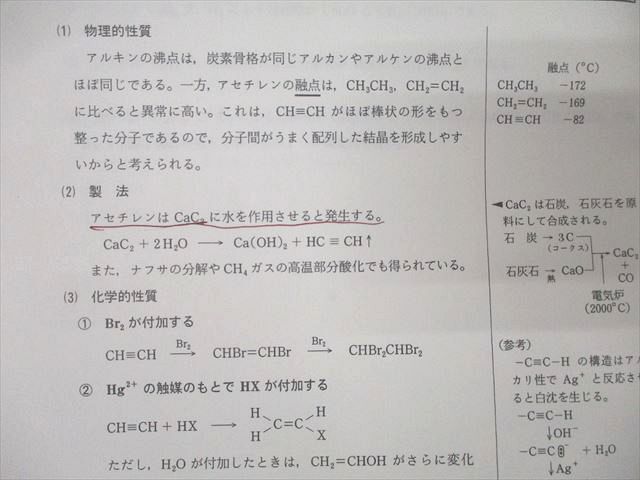 (1) 物理的性質
アルキンの沸点は，炭素骨格が同じアルカンやアルケンの沸点と
ほぼ同じである。一方，アセチレンの融点は，CH₃CH₃，CH₂=CH₂
に比べると異常に高い。これは，CH≡CH がほぼ棒状の形をもつ
整った分子であるので，分子間がうまく配列した結晶を形成しやす
いからと考えられる。
(2) 製 法
アセチレンは CaC₂ に水を作用させると発生する。
CaC₂ + 2H₂O ⟶ Ca(OH)₂ + HC ≡ CH↑
また，ナフサの分解や CH₄ ガスの高温部分酸化でも得られている。
(3) 化学的性質
① Br₂ が付加する
CH≡CH —Br₂→ CHBr=CHBr —Br₂→ CHBr₂CHBr₂
② Hg²⁺ の触媒のもとで HX が付加する
H H
CH≡CH + HX ⟶ C=C
H X
ただし，H₂O が付加したときは，CH₂=CHOH がさらに変化
融点 (°C)
CH₃CH₃ −172
CH₂=CH₂ −169
CH≡CH −82
◀CaC₂ は石炭，石灰石を原
料にして合成される。
石 炭 → 3C
(コークス)
CaC₂
+
CO
石灰石 → CaO
熱
電気炉
(2000°C)
(参考)
−C≡C−H の構造はアル
カリ性で Ag⁺ と反応さ
ると白沈を生じる。
−C≡C−H
↓OH⁻
−C≡C⁻ + H₂O
↓Ag⁺